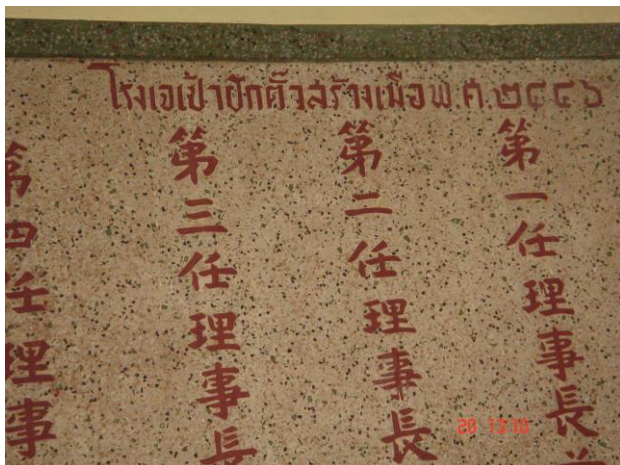 โรงเจเป้าปักตั๊วสร้างเมื่อพ.ศ.๒๔๔๖
第一任理事長
第二任理事長
第三任理事長
第四任理事
20 13:10